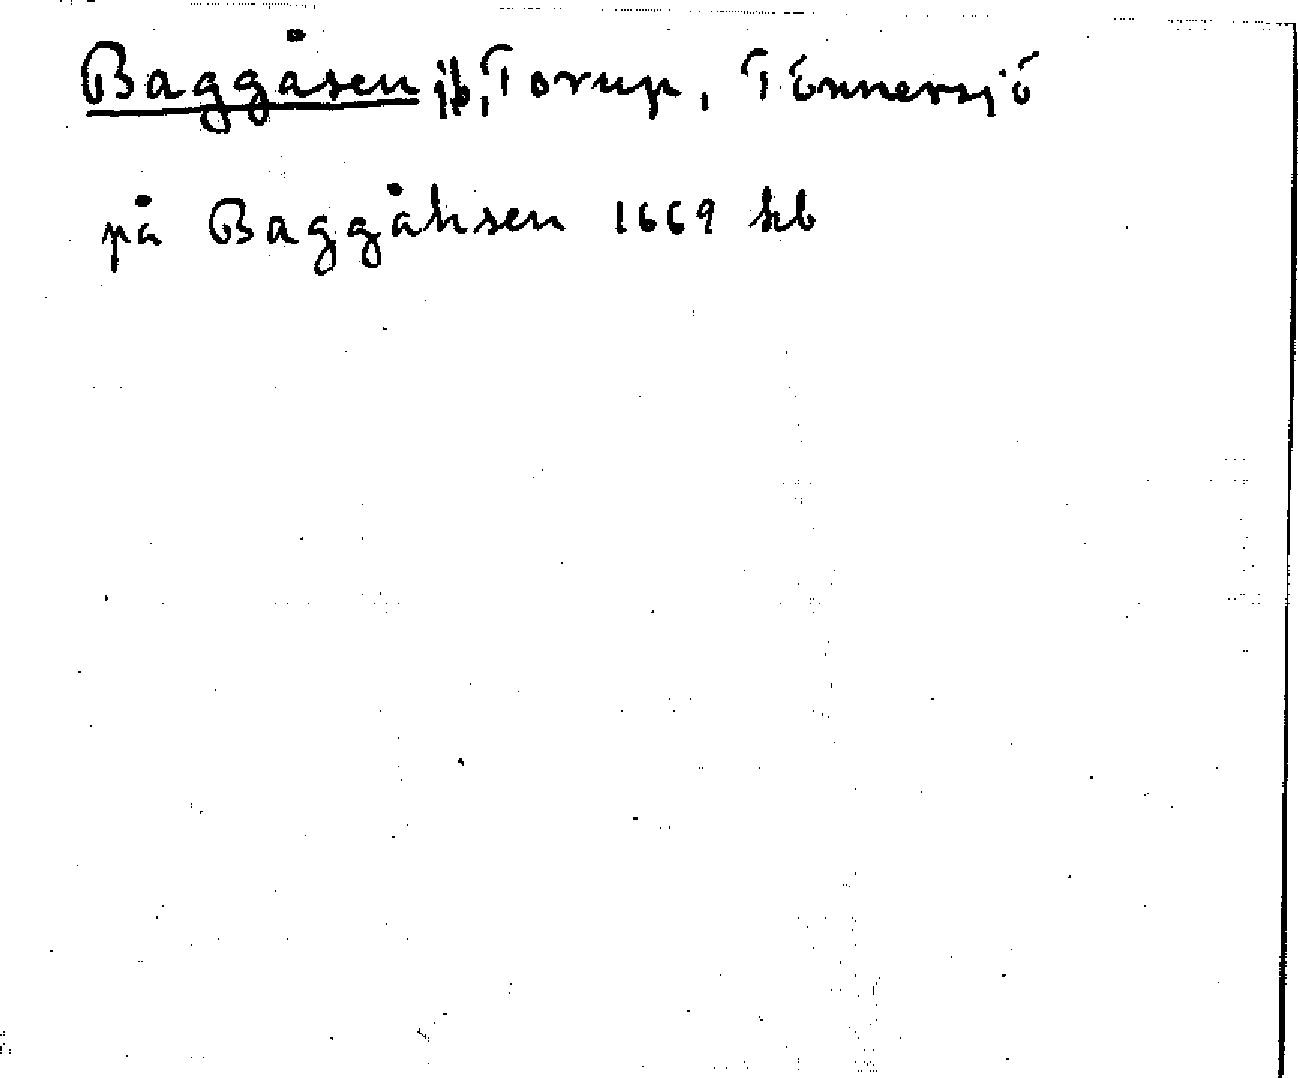 Baggåsen jb, Torup, Tönnersjö
på Baggåhsen 1669 hb